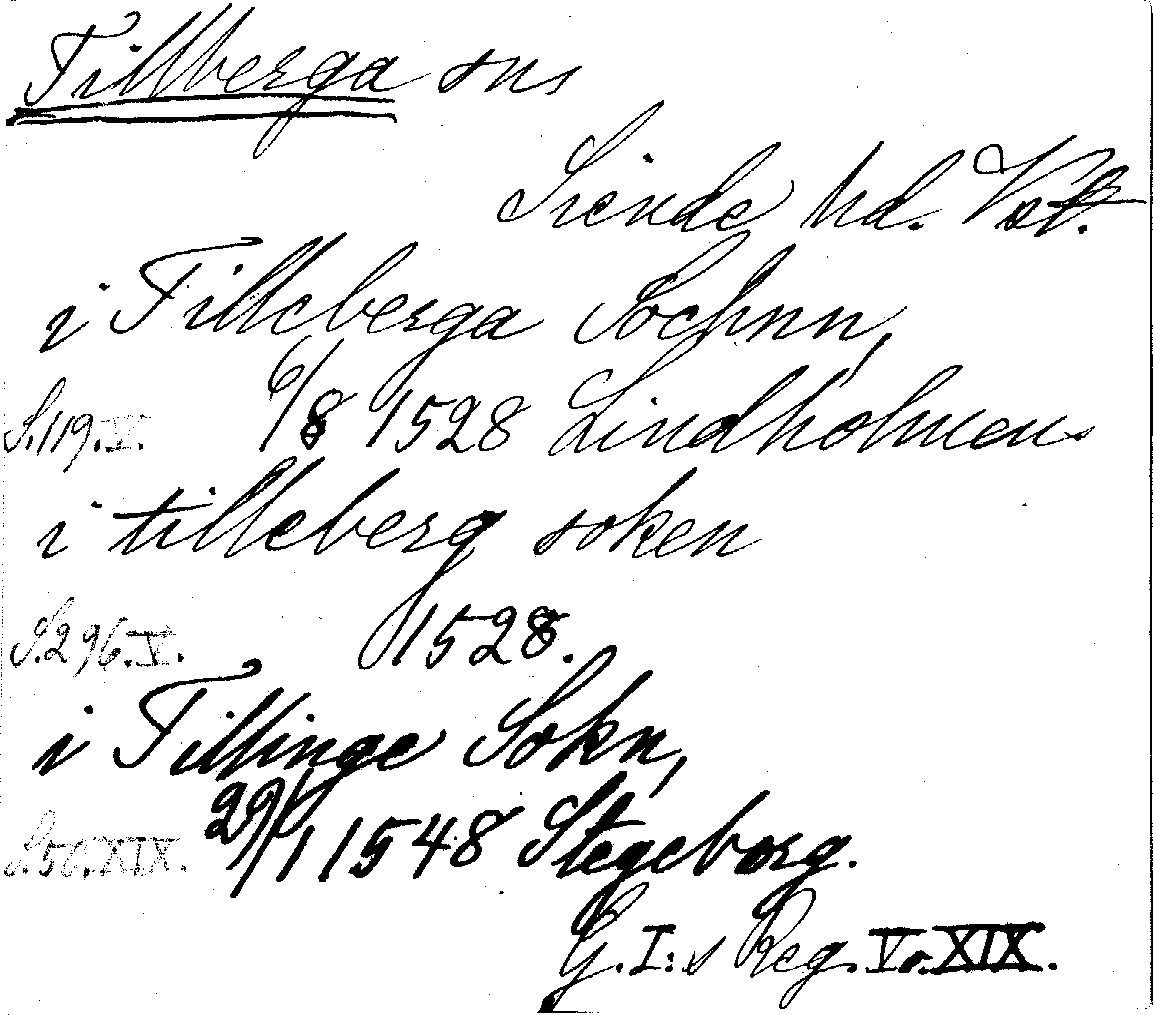 Tillberga sns
Siende hd. Vstm.
i Tilleberga Sochnn,
S.119.V. 6/8 1528 Lindholmens
i tilleberg soken
S.296.V. 1528.
i Tillinge Sokn,
S.50.XIX. 29/1 1548 Stegeborg.
G.I:s Reg. V o. XIX.